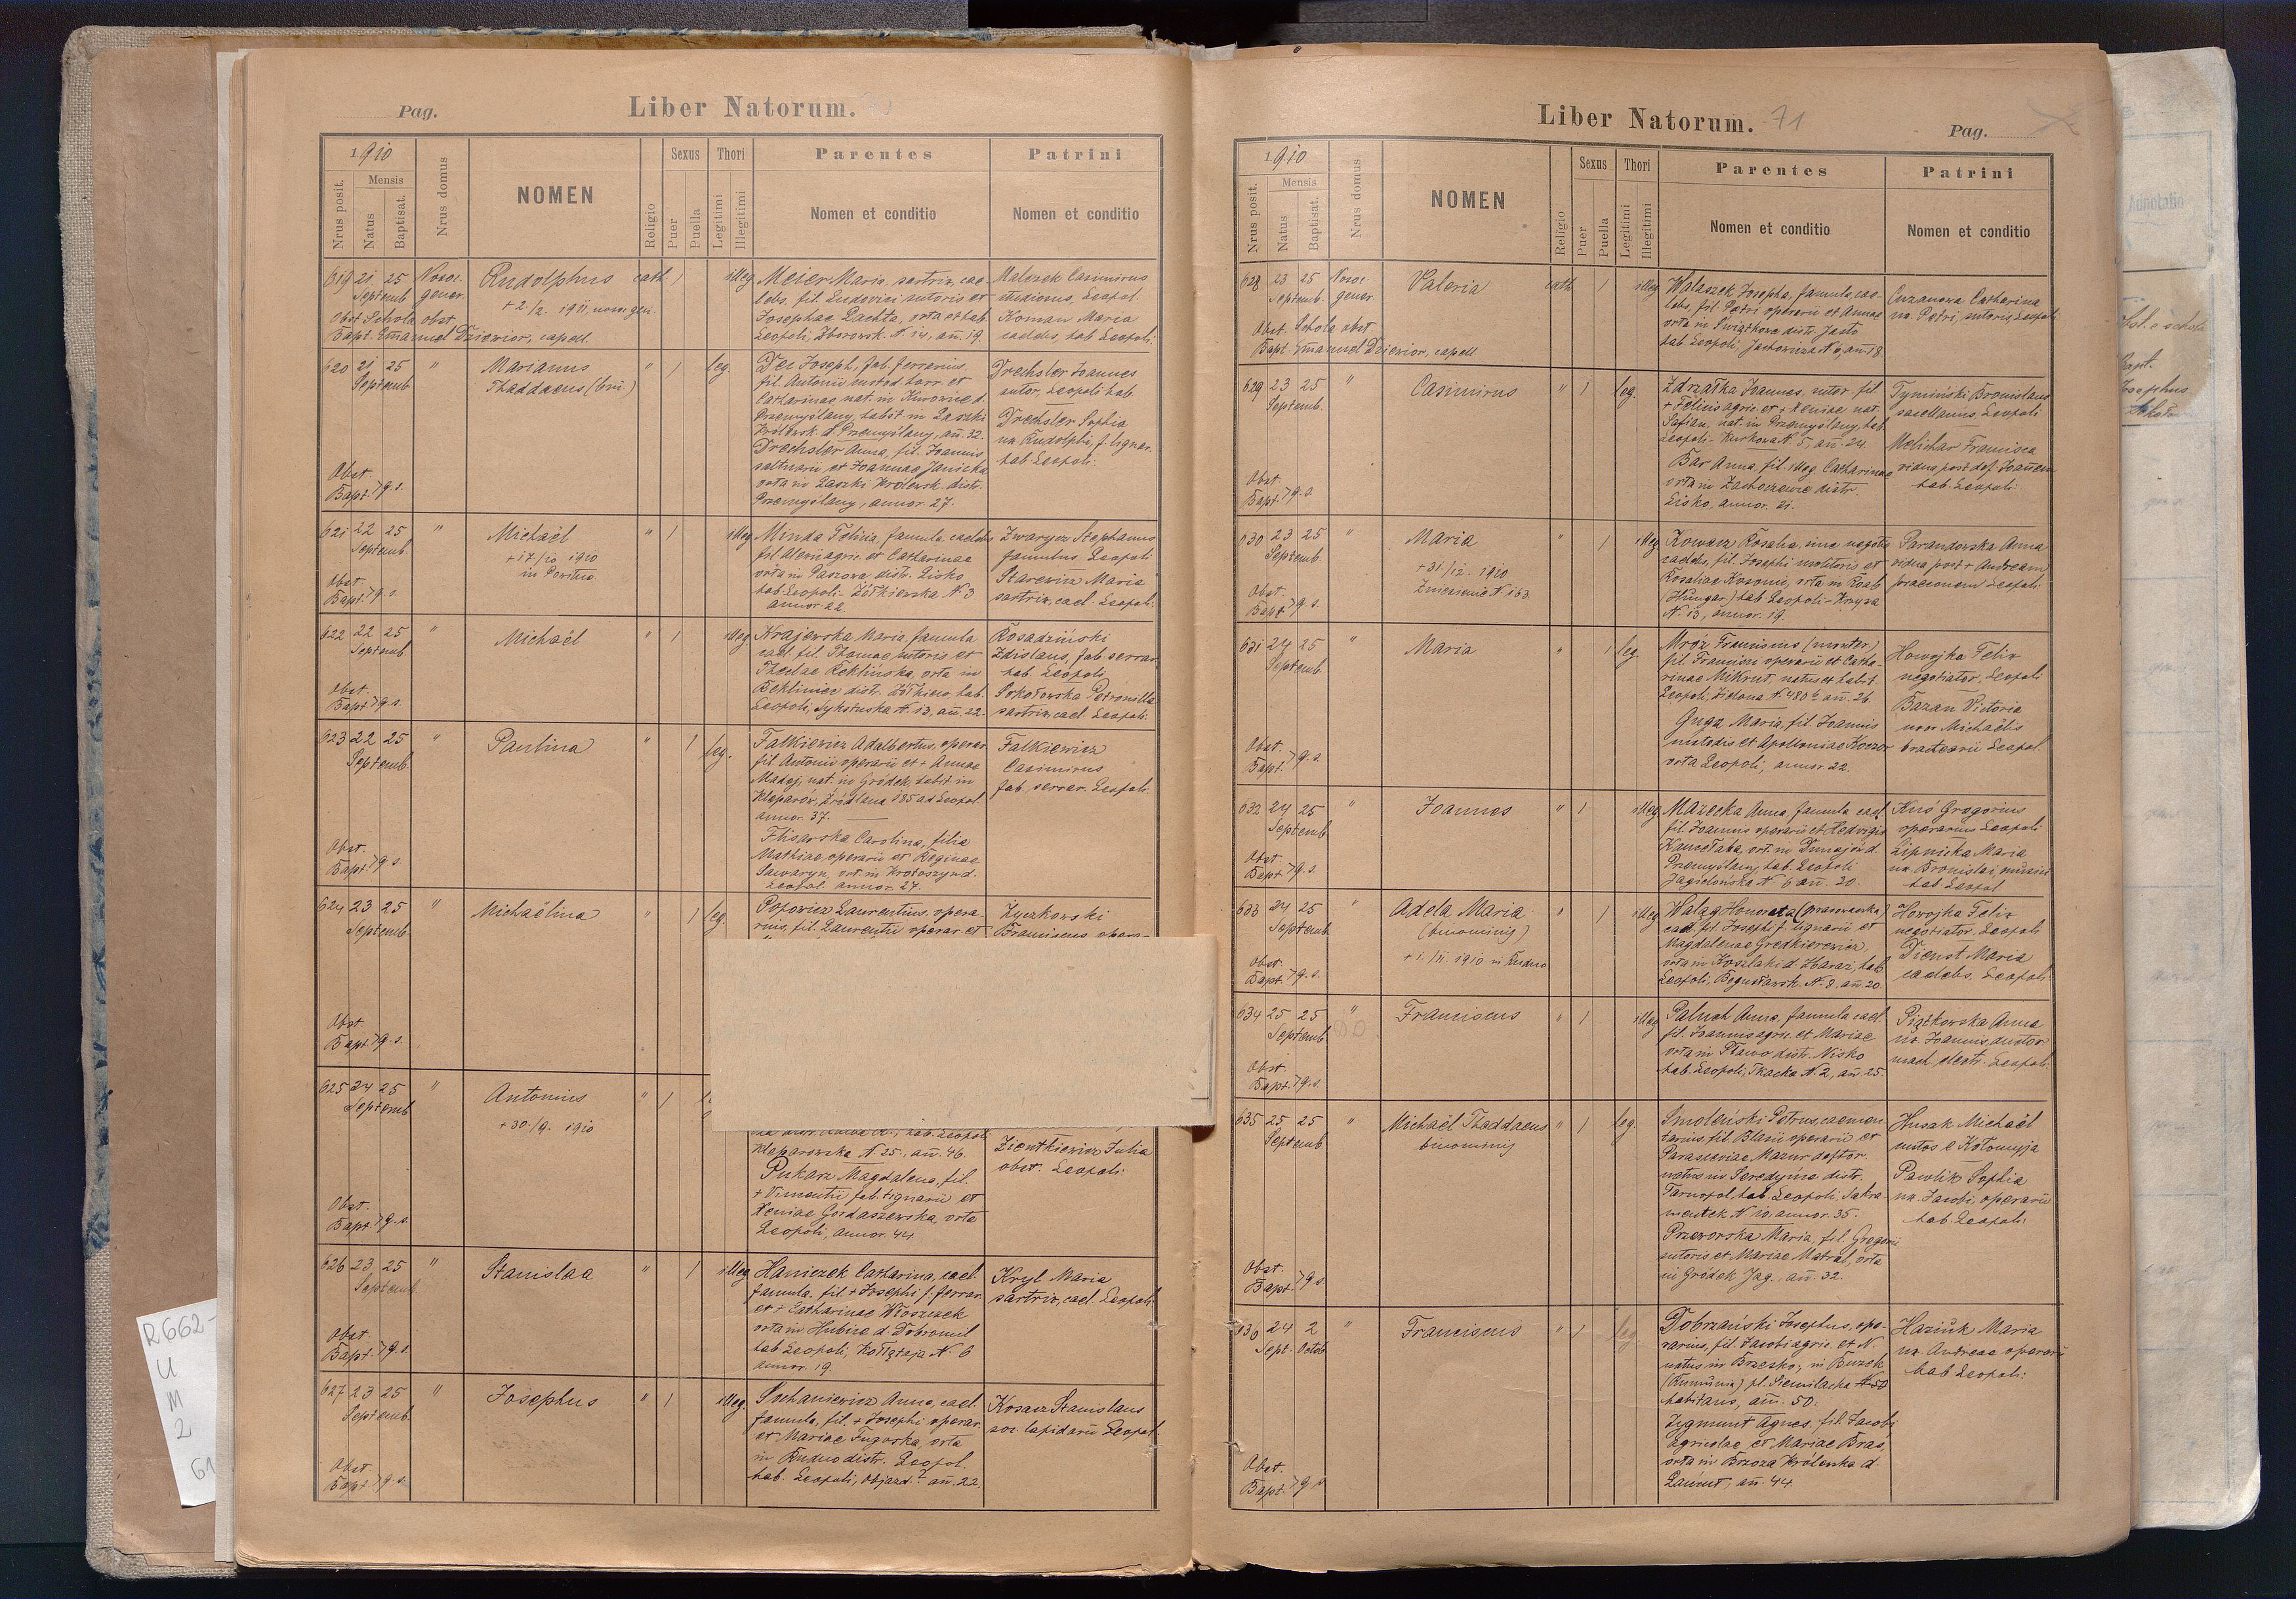 Pag.
Liber Natorum.
1910
Nrus posit.
Mensis
Natus
Baptisat.
Nrus domus
NOMEN
Religio
Sexus
Puer
Puella
Thori
Legitimi
Illegitimi
Parentes
Nomen et conditio
Patrini
Nomen et conditio
619 21 25 Nosoc. Rudolphus cath 1 illeg
Septemb. gener. + 2/2. 1911
Obst. Schola obst.
Bapt. Emanuel Dziewior, capell.
Meier Maria, sartrix, cae-
lebs, fil. Ludovici sutoris et
Josephae Lachta, orta et hab.
Leopoli, Zborowsk. N. 14, ann. 19.
Malczek Casimirus
medicus, Leopol.
Koman Maria
caelebs, hab. Leopoli.
620 21 25 " Marianus " 1 leg.
Septemb Thaddaeus (bin.)
Obst.
Bapt. > q. s.
Dec Joseph, fab. ferrarius
fil. Antonii custod. horr. et
Catharinae nat. in Kurowice d.
Przemyślany, habit in Laszki
Królewsk. d. Przemyślany, ann. 32.
Drechsler Anna, fil. Joannis
saltuarii et Joannae Janicka
orta in Laszki Królewsk. distr.
Przemyślany, annor. 27.
Drechsler Joannes
sutor, Leopoli hab.
Drechsler Sophia
ux. Rudolphi, f. lignar.
hab. Leopoli.
621 22 25 " Michaël " 1 illeg
Septemb. + 17/10 1910
in
Obst.
Bapt. > q. s.
Minda Felicia, famula, caelebs
fil. Alexii agric. et Catharinae
orta in Paszowa distr. Lisko
hab. Leopoli - Żółkiewska N. 3
annor. 22.
Zwarycz Stephanus
famulus, Leopoli
Starewicz Maria
sartrix, cael. Leopoli.
622 22 25 " Michaël " 1 illeg
Septemb
Obst.
Bapt. > q. s.
Krajewska Maria, famula
cael. fil. Thomae sutoris et
Theclae Rektińska, orta in
distr. Żółkiew, hab.
Leopoli, Sykstuska N. 13, ann. 22.
Rosadziński
Zdislaus, fab. serrar.
hab. Leopoli.
Sokołowska Petronilla
sartrix, cael. Leopoli.
623 22 25 " Paulina " 1 leg.
Septemb.
Obst.
Bapt. > q. s
Falkiewicz Adalbertus, operar.
fil. Antonii operarii et + Annae
Madej, nat. in Gródek, habit in
Kleparów, Źródlana 135 ad Leopol.
annor. 37.
Flisarska Carolina, filia
Mathiae, operarii et Reginae
Sawaryn, ort. in Krotoszyn d.
Leopol. annor. 27.
Falkiewicz
Casimirus
fab. serrar. Leopoli.
624 23 25 " Michaëlina " 1 leg.
Septemb.
Obst.
Bapt. > q. s.
Popowicz Laurentius, opera-
rius, fil. Laurentii operar. et
Zyczkowski
Franciscus, opera-
625 24 25 " Antonius " 1
Septemb + 30./9. 1910
Obst.
Bapt. > q. s.
Kleparowska N. 25., ann. 46.
Pukarz Magdalena, fil.
+ Vincentii fab. lignarii et
Xeniae Gordaszewska, orta
Leopoli, annor. 44.
Zientkiewicz Julia
obst. Leopoli.
626 23 25 " Stanislaa " 1 illeg
Septemb.
Obst.
Bapt. > q. s
Haniczek Catharina, cael.
famula, fil. + Josephi f. ferrar.
et + Catharinae Włoszczek
orta in Hubice d. Dobromil
hab. Leopoli, Kołłątaja N. 6
annor. 19.
Kryl Maria
sartrix, cael. Leopoli.
627 23 25 " Josephus " 1 illeg.
Septemb.
Obst.
Bapt. > q. s.
Sochaniewicz Anna, cael.
famula, fil. + Josephi operar.
et Mariae Tugorska, orta
in Rudno distr. Leopol.
hab. Leopoli, Objazd. 7 ann. 22.
Kosacz Stanislaus
soc. lapidarii Leopol.
R662-
U
M
2
61
Liber Natorum. 71
Pag.
1910
Nrus posit.
Mensis
Natus
Baptisat.
Nrus domus
NOMEN
Religio
Sexus
Puer
Puella
Thori
Legitimi
Illegitimi
Parentes
Nomen et conditio
Patrini
Nomen et conditio
628 23 25 Nosoc. Valeria cath 1 illeg
Septemb. gener.
Obst. Schola obst.
Bapt. Emanuel Dziewior, capell
Walaszek Josepha, famula, cae-
lebs, fil. Petri operarii et Annae
orta in Świątkowa distr. Jasło
hab. Leopoli, Jachowicza N. 6, ann. 18.
Cuzanowa Catharina
ux. Petri, sutoris, Leopoli
629 23 25 " Casimirus " 1 leg.
Septemb.
Obst.
Bapt. > q. s.
Zdrzałka Joannes, sutor, fil.
+ Felicis agric. et + Xeniae nat.
Safian, nat. in Przemyślany, hab.
Leopoli - Kurkowa N. 5, ann. 24.
Bar Anna, fil. illeg. Catharinae
orta in distr.
Lisko, annor. 21.
Tymiński Bronislaus
sacellanus, Leopoli
Melichar Francisca
vidua post def. Joannem
hab. Leopoli.
630 23 25 " Maria " 1 illeg.
Septemb. + 31/12. 1910
Zniesienie N. 163
Obst.
Bapt. > q. s.
Kowacz Rosalia, sine negotio
caelebs, fil. Josephi molitoris et
Rosaliae orta in Raab
(Hungar.) hab. Leopoli - Krzywa
N. 13, annor. 19.
Parandowska Anna
vidua post + Andream
praeconem Leopoli.
631 24 25 " Maria " 1 leg.
Septemb.
Obst.
Bapt. > q. s.
Mróz Franciscus (monter)
fil. Francisci operarii et Catha-
rinae Mikrut, natus et habit.
Leopoli, Zielona N. 480 b ann. 26.
Guga Maria, fil. Joannis
custodis et Apolloniae
orta Leopoli, annor. 22.
Howojka Felix
negotiator, Leopoli
Bazan Victoria
uxor Michaëlis
bractearii Leopol.
632 24 25 " Joannes " 1 illeg
Septemb.
Obst.
Bapt. > q. s
Mazecka Anna, famula cael
fil. Joannis operarii et Hedvigis
ort. in Dunajów d.
Przemyślany, hab. Leopoli
Jagielońska N. 6 ann. 20.
Kuś Gregorius
operarius Leopoli
Lipnicka Maria
ux. Bronislai, musici
hab. Leopol
633 24 25 " Adela Maria " 1 illeg
Septemb. (binominis)
+ 1./11. 1910 in Rudno
Obst.
Bapt. > q. s.
Waląg Honorata (prasowaczka)
cael. fil. Josephi f. lignarii et
Magdalenae Gredkierewicz,
orta in Koszlaki d. Zbaraż, hab.
Leopoli, Bogusławsk. N. 8, ann. 20.
Howojka Felix
negotiator, Leopoli
Dienst Maria
caelebs. Leopoli.
634 25 25 " Franciscus " 1 illeg
Septemb.
Obst.
Bapt. > q. s.
Paluch Anna, famula cael.
fil. Joannis agric. et Mariae
orta in Pławo distr. Nisko
hab. Leopoli, Tkacka N. 2, ann. 25.
Piątkowska Anna
ux. Joannis, custor.
mach. electr. Leopoli.
635 25 25 " Michaël Thaddaeus " 1 leg.
Septemb. binominis
Obst.
Bapt. > q. s.
Smoleński Petrus, caemen-
tarius, fil. Blasii operarii et
Parasceviae Mazur
natus in Seredyńce distr.
Tarnopol, hab. Leopoli, Sakra-
mentek N. 10, annor. 35.
Przeworska Maria, fil. Gregorii
sutoris, et Mariae Matral, orta
in Gródek Jag., ann. 32.
Husak Michaël
miles e Kołomyja
Pawlik Sophia
ux. Jacobi, operarii
hab. Leopoli.
636 24 2 " Franciscus " 1 leg.
Sept. Octob
Obst.
Bapt. > q. s
Dobrzański Josephus, ope-
rarius, fil. Jacobi agric. et N.
natus in Brzesko, in Buzek
(Rumunia) pl.
habitans, ann. 50.
Zygmunt Agnes, fil. Jacobi
agricolae et Mariae Bras,
orta in Brzoza Królewska d.
Łańcut, ann. 44.
Haziuk Maria
ux. Andreae operarii
hab. Leopoli.
Adnotatio